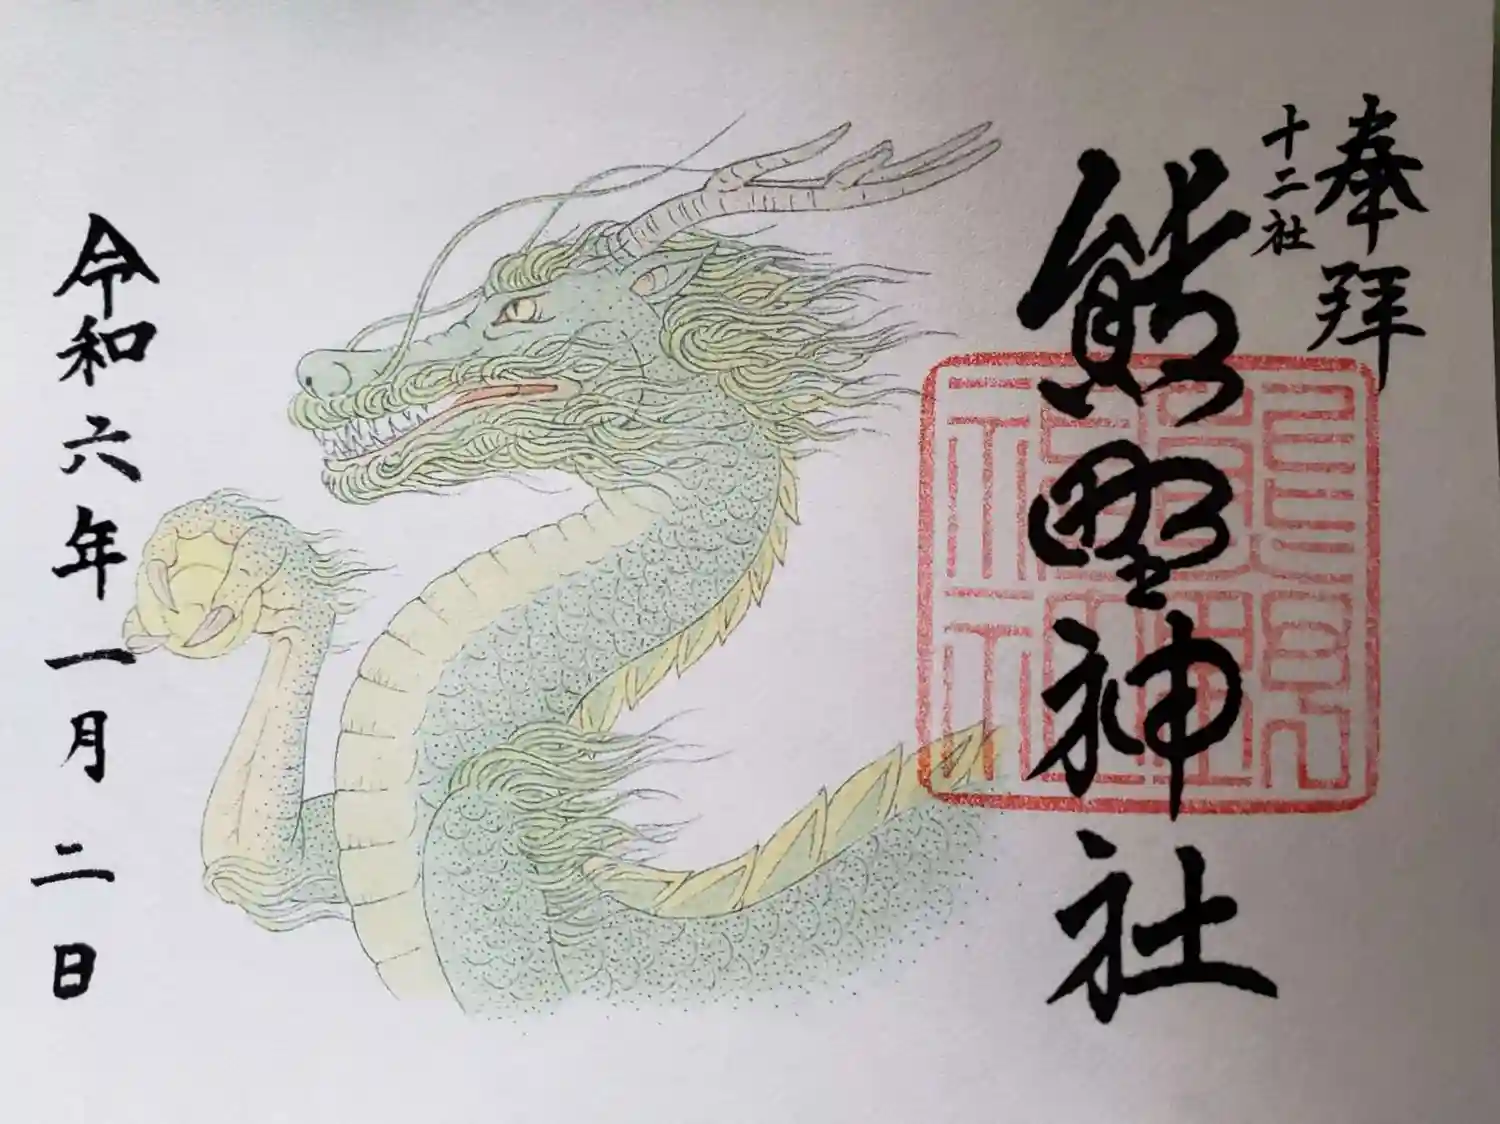 奉拝
十二社
熊野神社
令和六年一月二日